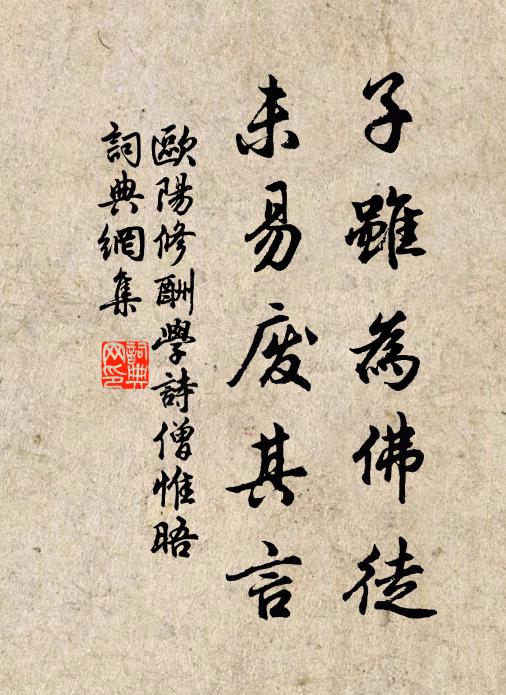 子雖為佛徒
未易废其言
歐陽修酬學詩僧惟晤
詞典網集
詞典
网印